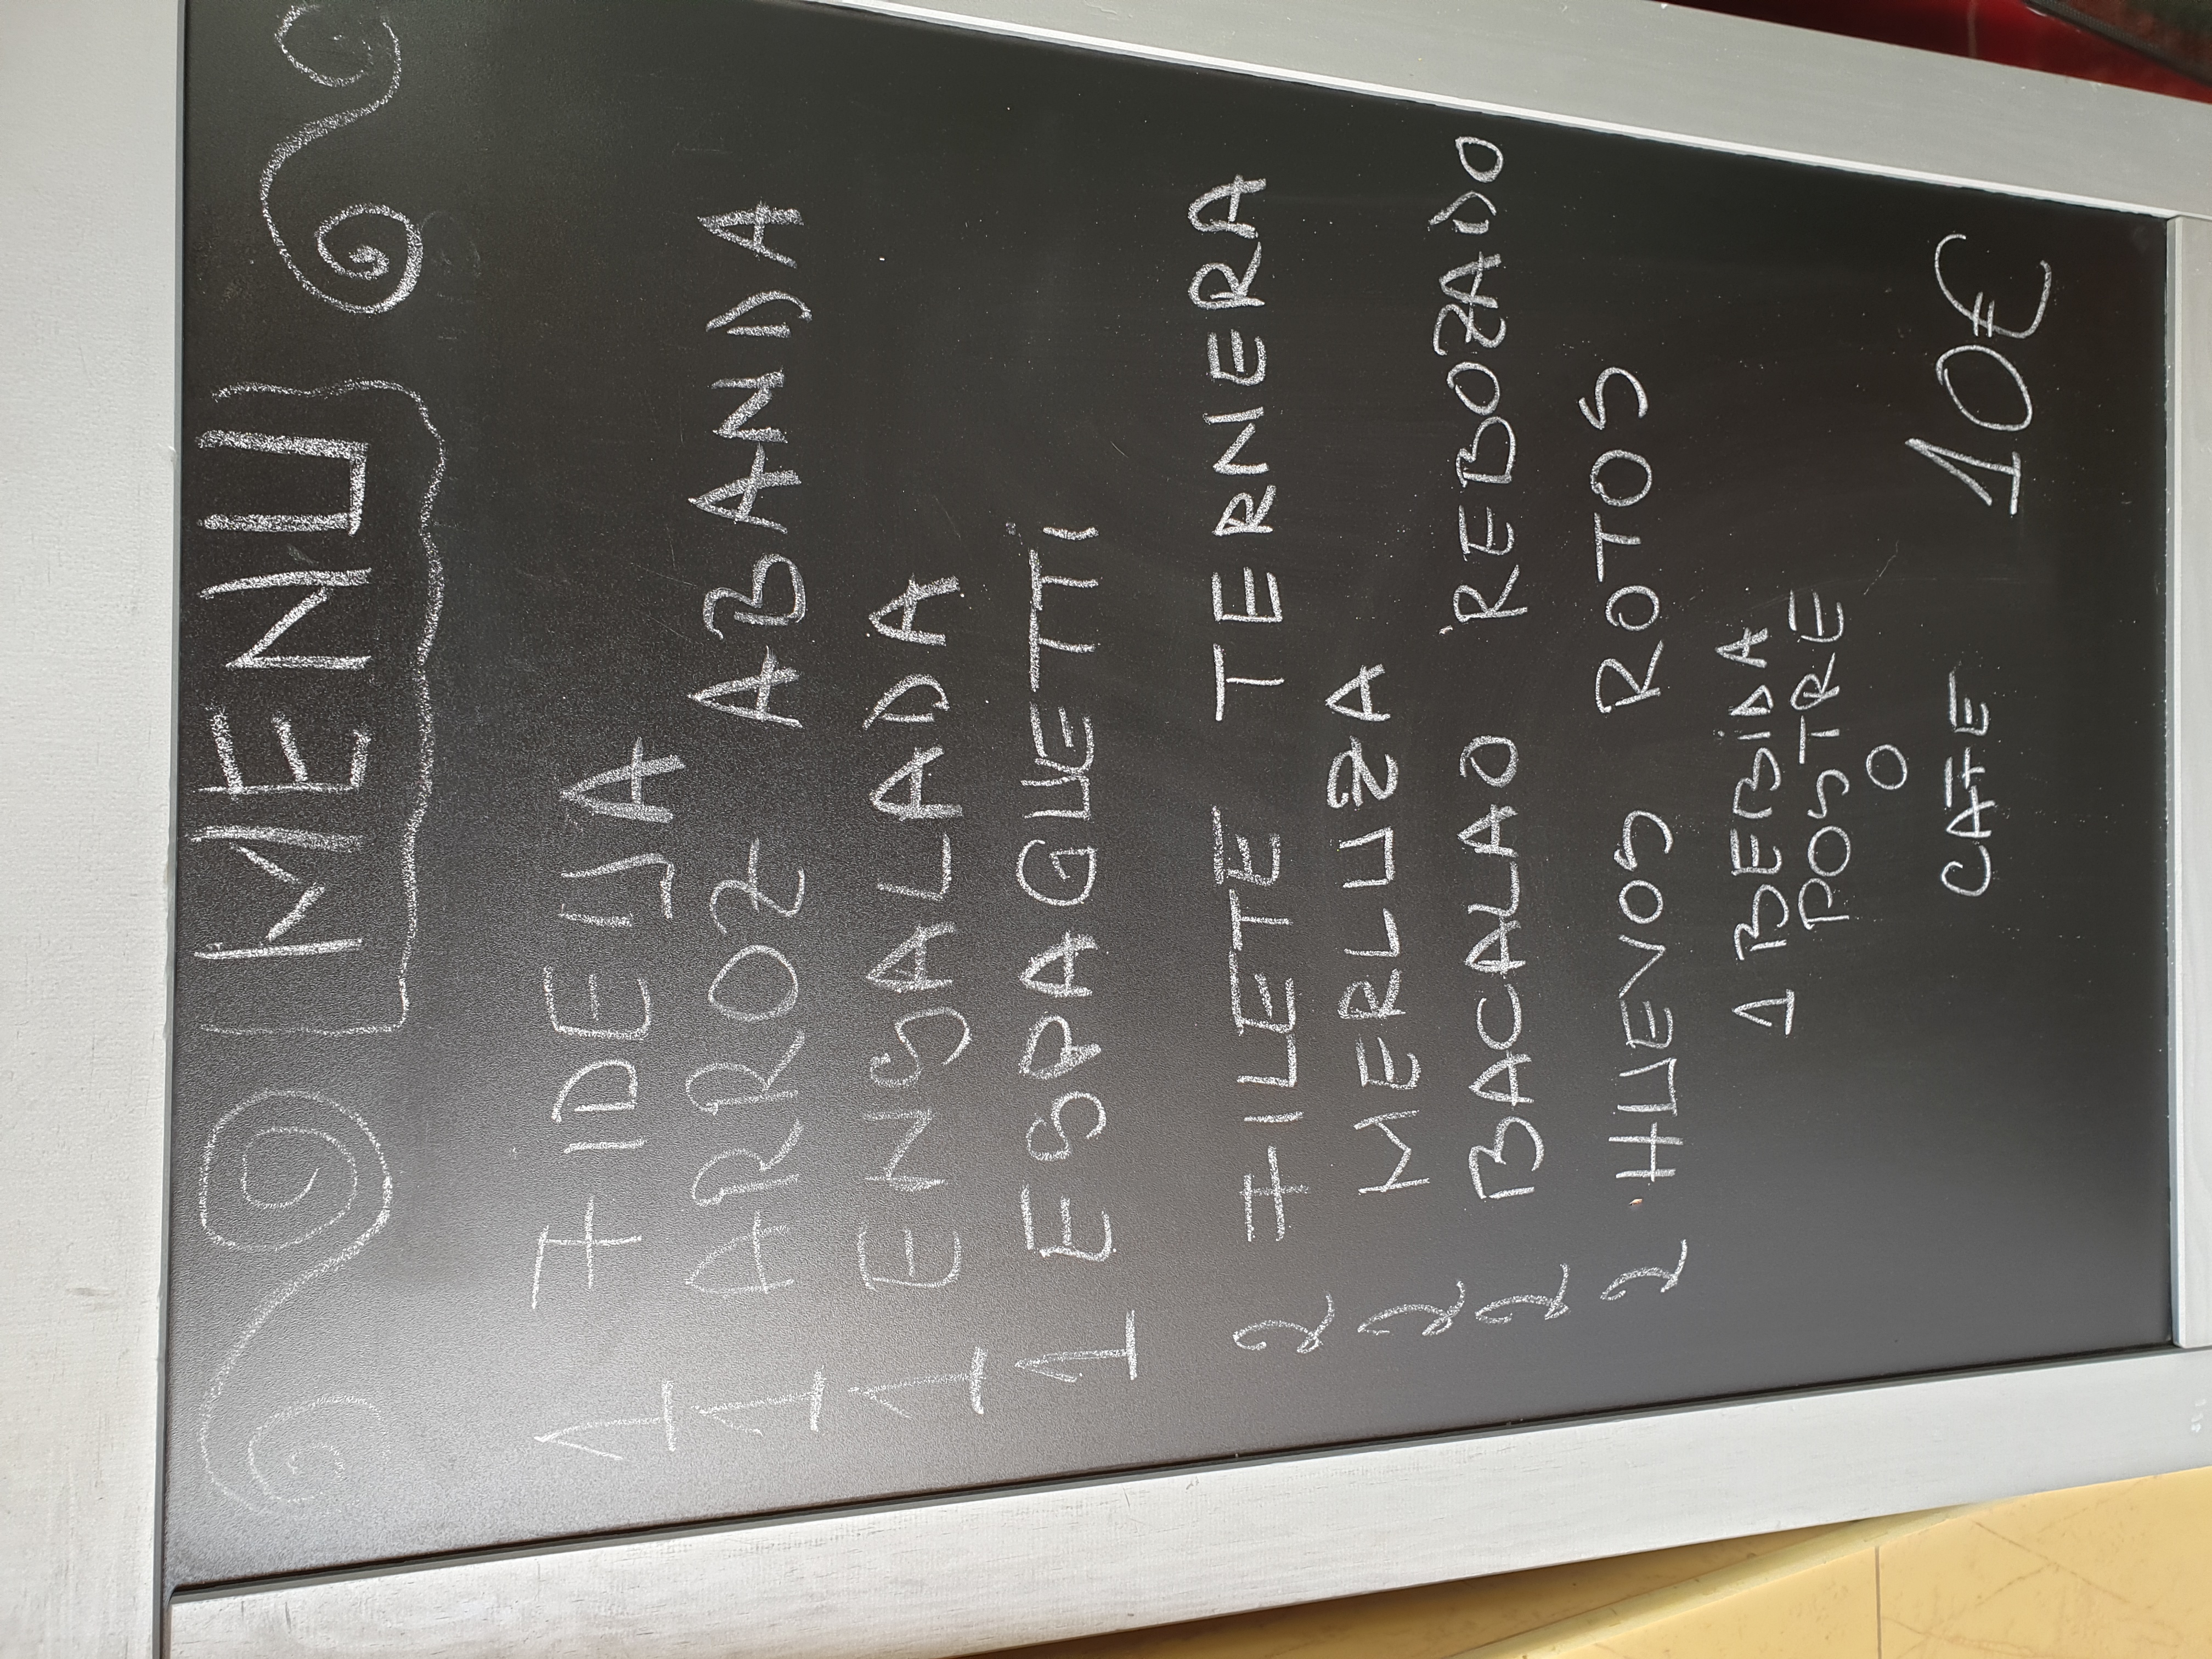 MENU
1 FIDEUA
1 ARROZ ABANDA
1 ENSALADA
1 ESPAGUETTI
2 FILETE TERNERA
2 MERLUZA
2 BACALAO REBOZADO
2 HUEVOS ROTOS
1 BEBIDA
POSTRE
O
CAFE 10€